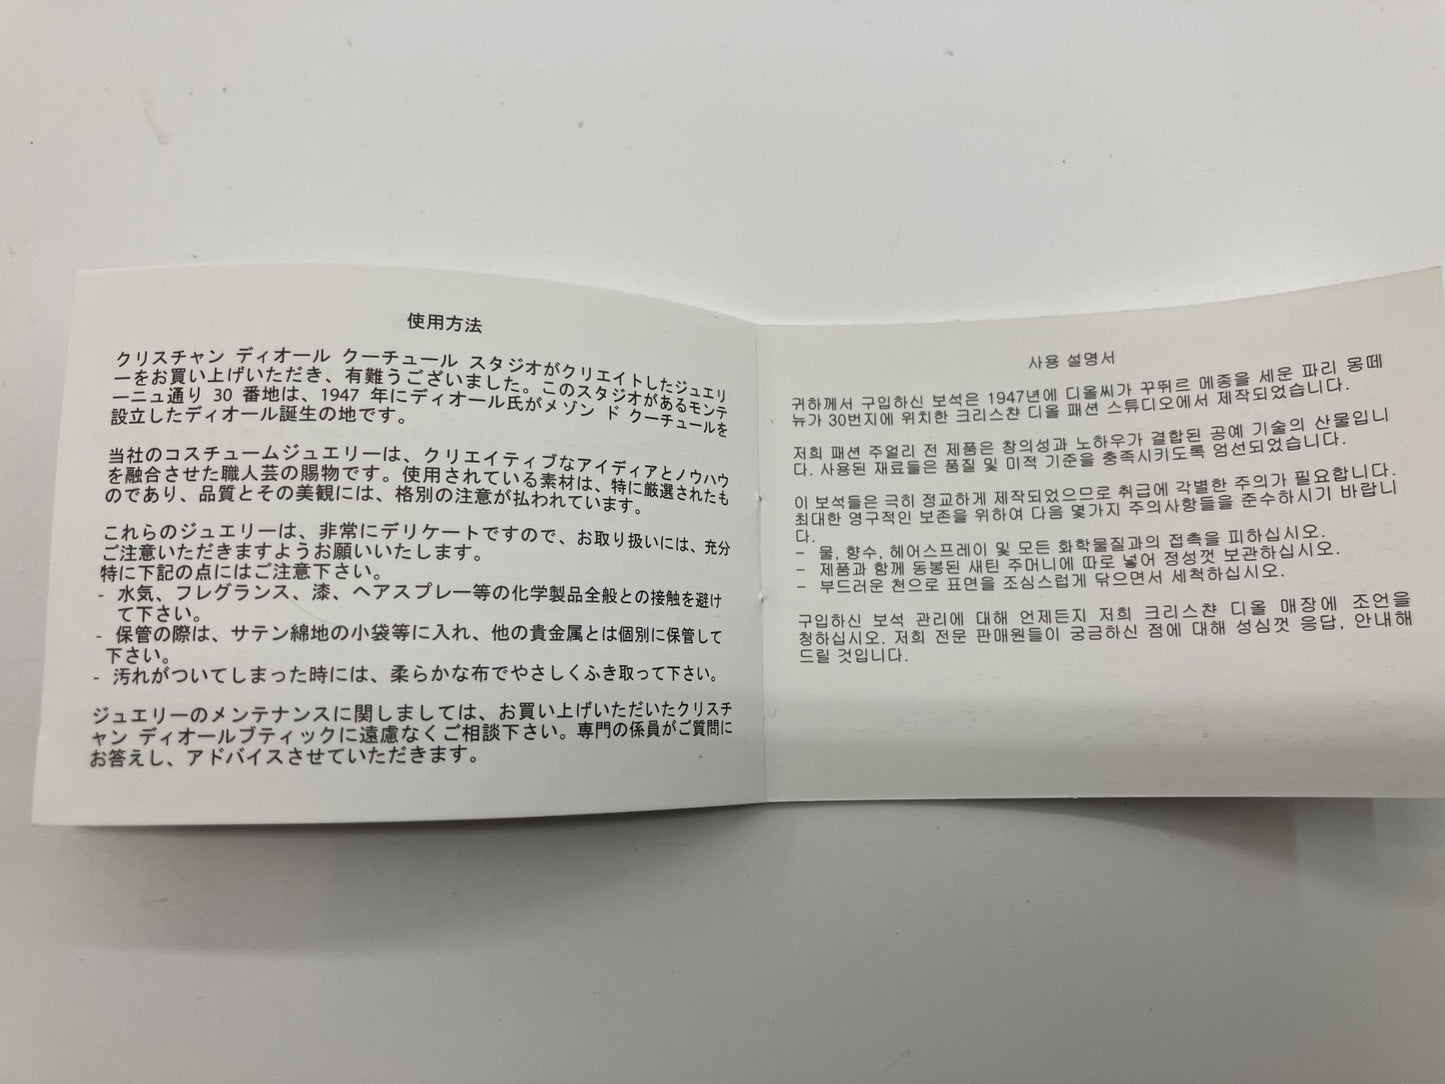 使用方法
クリスチャン ディオール クーチュール スタジオがクリエイトしたジュエリ
ーをお買い上げいただき、有難うございました。このスタジオがあるモンテ
ーニュ通り 30 番地は、1947 年にディオール氏がメゾン ド クーチュールを
設立したディオール誕生の地です。
当社のコスチュームジュエリーは、クリエイティブなアイディアとノウハウ
を融合させた職人芸の賜物です。使用されている素材は、特に厳選されたも
のであり、品質とその美観には、格別の注意が払われています。
これらのジュエリーは、非常にデリケートですので、お取り扱いには、充分
ご注意いただきますようお願いいたします。
特に下記の点にはご注意下さい。
- 水気、フレグランス、漆、ヘアスプレー等の化学製品全般との接触を避け
て下さい。
- 保管の際は、サテン綿地の小袋等に入れ、他の貴金属とは個別に保管して
下さい。
- 汚れがついてしまった時には、柔らかな布でやさしくふき取って下さい。
ジュエリーのメンテナンスに関しましては、お買い上げいただいたクリスチ
ャン ディオールブティックに遠慮なくご相談下さい。専門の係員がご質問に
お答えし、アドバイスさせていただきます。
사용 설명서
귀하께서 구입하신 보석은 1947년에 디올씨가 꾸뛰르 메종을 세운 파리 몽떼
뉴가 30번지에 위치한 크리스챤 디올 패션 스튜디오에서 제작되었습니다.
저희 패션 주얼리 전 제품은 창의성과 노하우가 결합된 공예 기술의 산물입니
다. 사용된 재료들은 품질 및 미적 기준을 충족시키도록 엄선되었습니다.
이 보석들은 극히 정교하게 제작되었으므로 취급에 각별한 주의가 필요합니다.
최대한 영구적인 보존을 위하여 다음 몇가지 주의사항들을 준수하시기 바랍니
다.
- 물, 향수, 헤어스프레이 및 모든 화학물질과의 접촉을 피하십시오.
- 제품과 함께 동봉된 새틴 주머니에 따로 넣어 정성껏 보관하십시오.
- 부드러운 천으로 표면을 조심스럽게 닦으면서 세척하십시오.
구입하신 보석 관리에 대해 언제든지 저희 크리스챤 디올 매장에 조언을
청하십시오. 저희 전문 판매원들이 궁금하신 점에 대해 성심껏 응답, 안내해
드릴 것입니다.